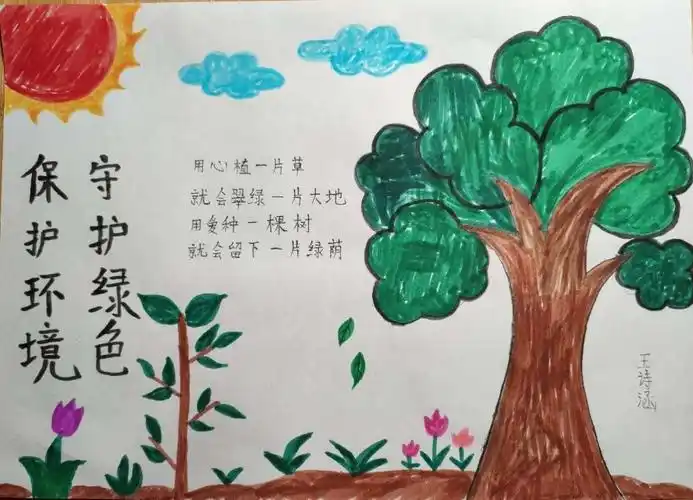 守护绿色
保护环境
用心植一片草
就会翠绿一片大地
用爱种一棵树
就会留下一片绿荫
王诗涵